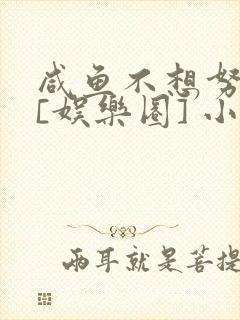 咸鱼不想努
[娱樂圈] 小
两耳就是菩提